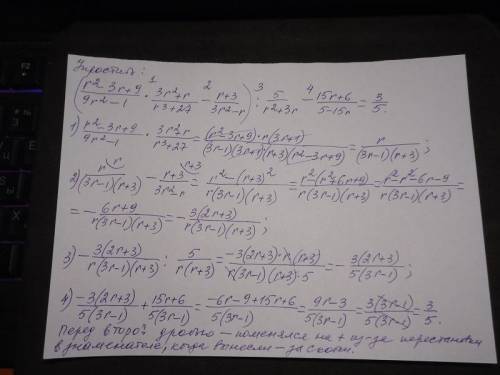 Упростить:
(r²-3r+9/9r²-1 · 3r²+r/r³+27 - r+3/3r²-r) : 5/r²+3r - 15r+6/5-15r = 3/5.
1) r²-3r+9/9r²-1 · 3r²+r/r³+27 = (r²-3r+9)·r(3r+1)/(3r-1)(3r+1)(r+3)(r²-3r+9) = r/(3r-1)(r+3);
2) r/(3r-1)(r+3) - r+3/3r²-r = r²-(r+3)²/r(3r-1)(r+3) = r²-(r²+6r+9)/r(3r-1)(r+3) = r²-r²-6r-9/r(3r-1)(r+3) =
= - 6r+9/r(3r-1)(r+3) = - 3(2r+3)/r(3r-1)(r+3);
3) - 3(2r+3)/r(3r-1)(r+3) : 5/r(r+3) = -3(2r+3)·r(r+3)/r(3r-1)(r+3)·5 = - 3(2r+3)/5(3r-1);
4) -3(2r+3)/5(3r-1) + 15r+6/5(3r-1) = -6r-9+15r+6/5(3r-1) = 9r-3/5(3r-1) = 3(3r-1)/5(3r-1) = 3/5.
Перед второй дробью - поменялся на + из-за перестановки
в знаменателе, когда вынесли - за скобки.